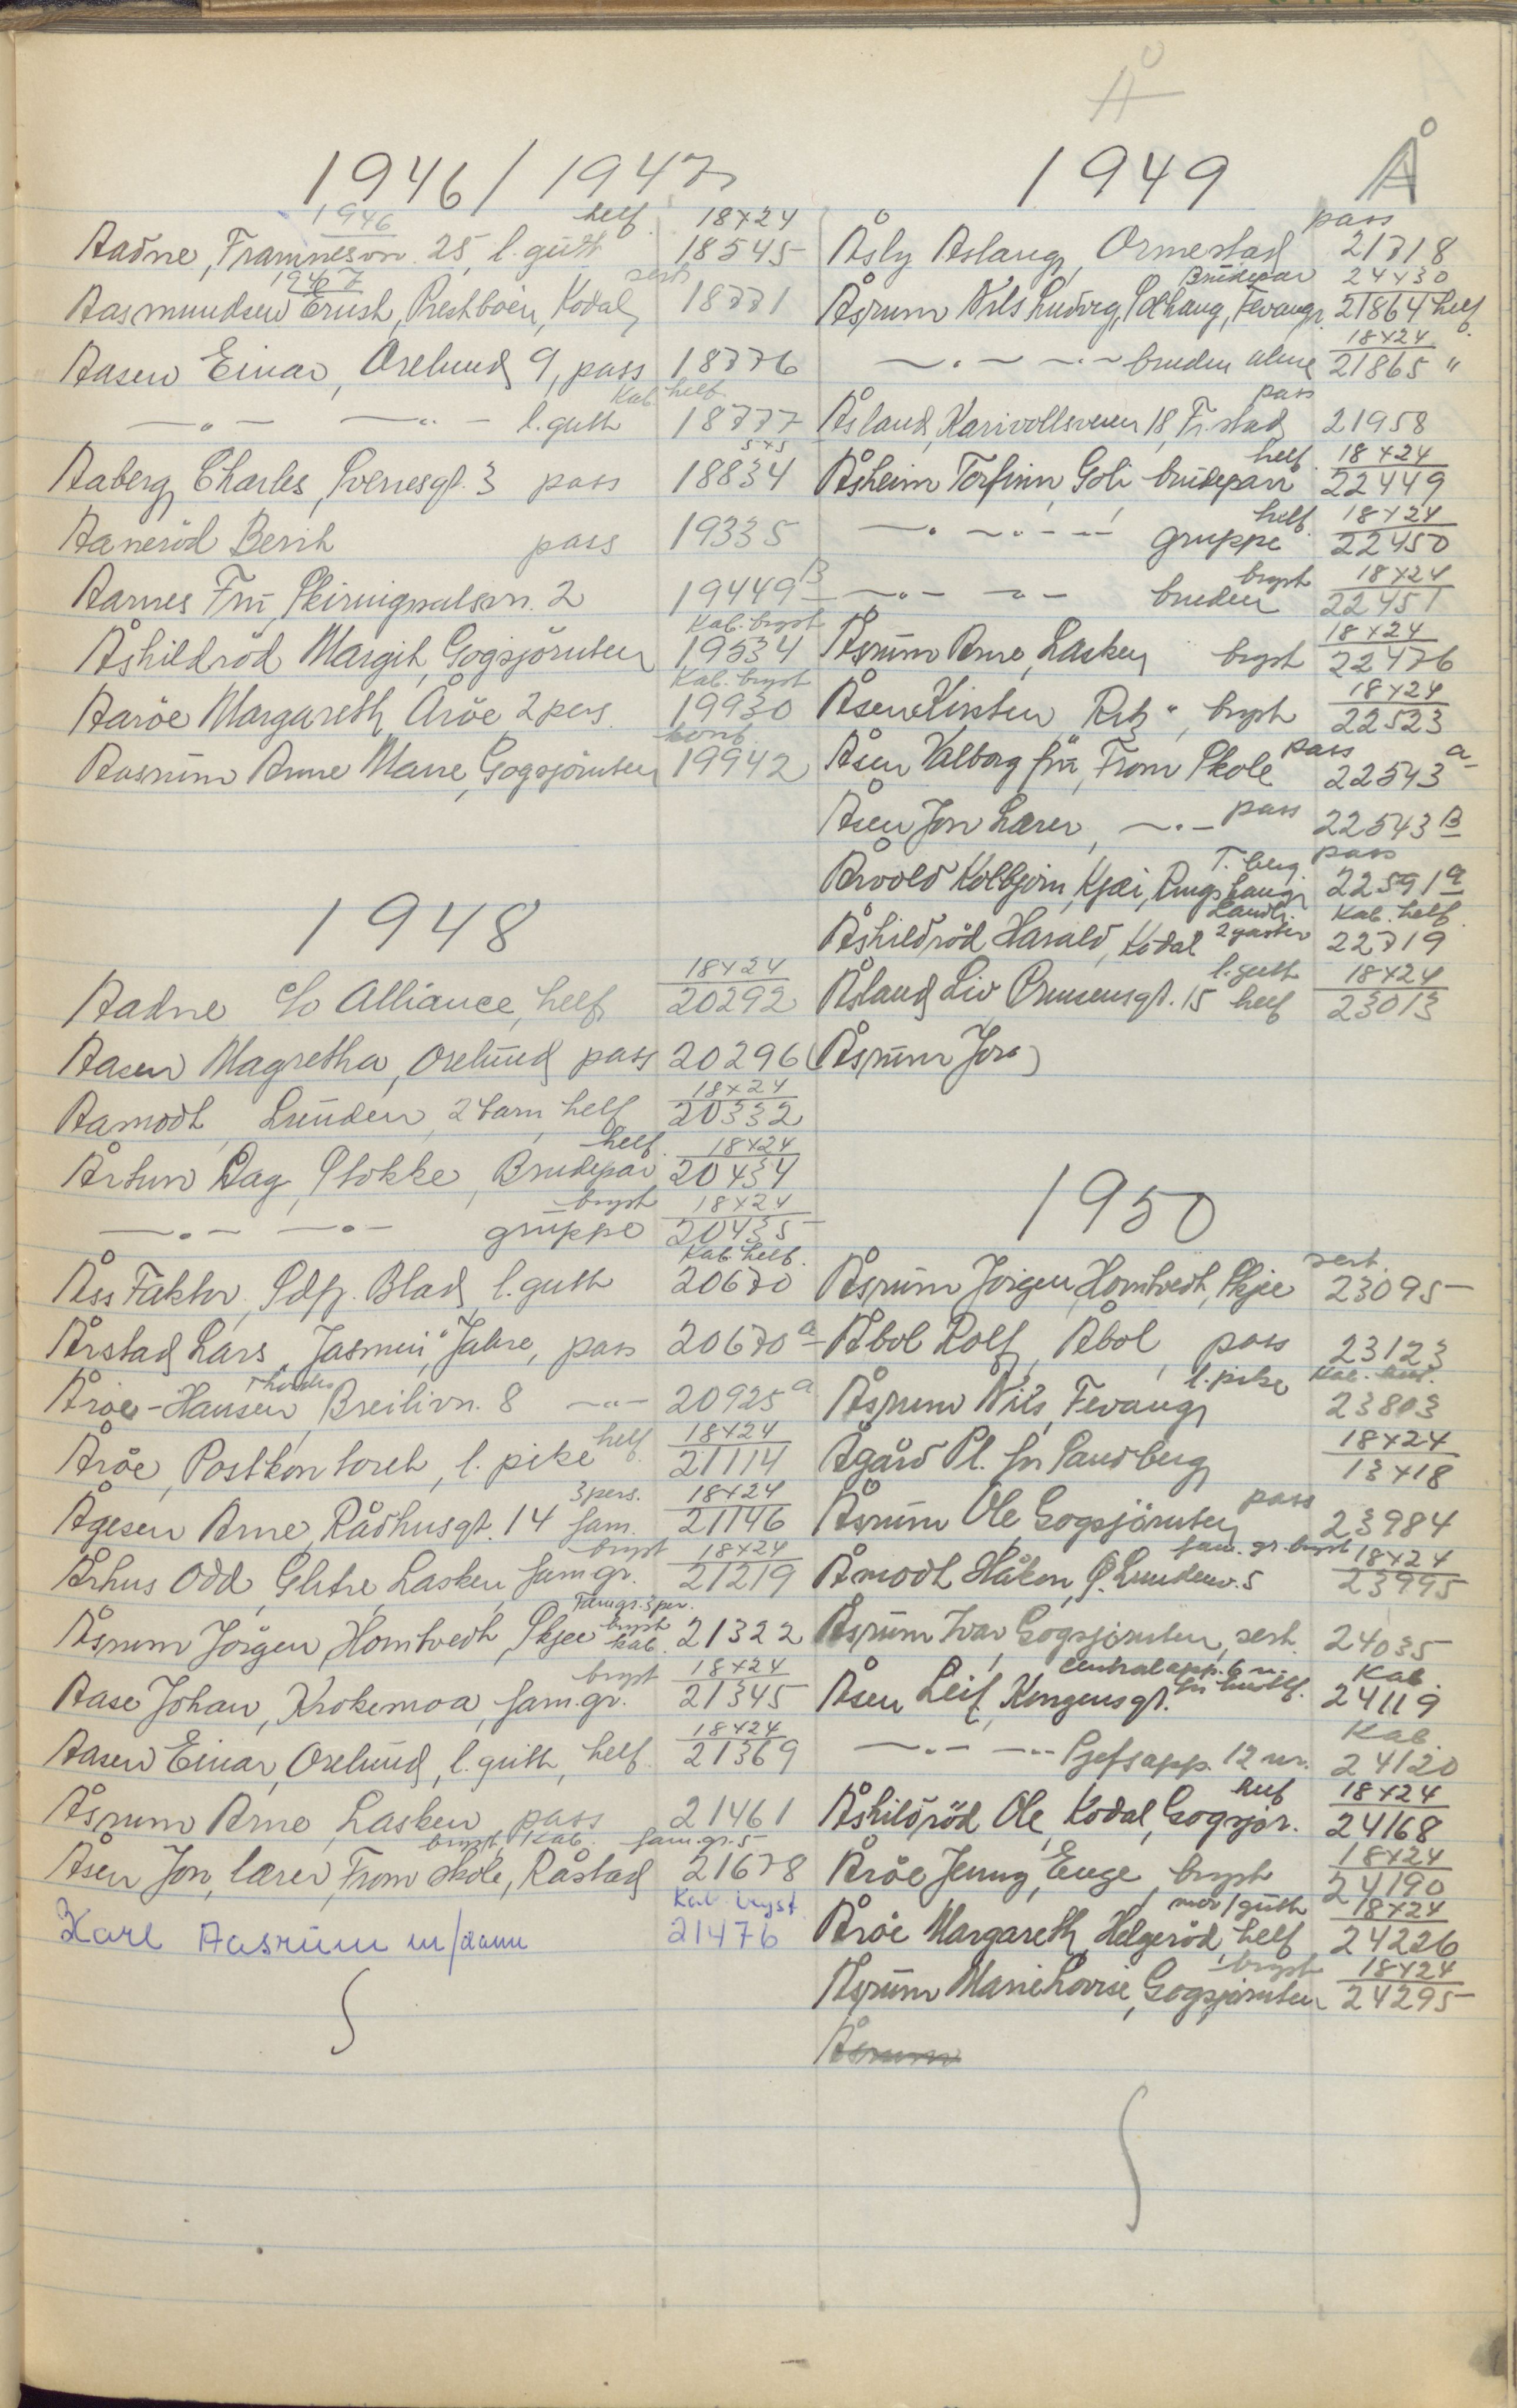 Å
1946/1947
1946
Aadne, Framnesvn. 25, l. gutt helf. 18x24 18545
1947
Aasmundsen Ernst, Prestbøen, Kodal, sert. 18771
Aasen Einar, Orelund 9, pass 18776
—"— —"— l. gutt Kab. helf. 18777
Aaberg Charles, Sverresgt. 3 pass 5x5 18834
Aanerød Berit pass 19335
Aarnes Fru, Skiringssalsvn. 2 19449 B
Åshildrød Margit, Gogsjøruten Kab. bryst 19534
Aarøe Margareth, Årøe 2 pers. Kab. bryst 19930
Aasrum Anne Marie, Gogsjøruten 19942
1948
Aadne c/o Alliance, helf. 18x24 20292
Aasen Magretha, Orelund pass 20296
Aamodt, Lunden, 2 barn, helf 18x24 20332
Århun Dag, Stokke, Brudepar helf. 18x24 20434
—"— —"— gruppe bryst 18x24 20435
Åss Faktor, Sdfj. Blad, l. gutt Kab. helf. 20670
Årstad Lars, "Jasmin", Jahre, pass 20670 a
Årøe-Hansen Thordis, Breilivn. 8 —"— 20925 a
Årøe, Postkontoret, l. pike helf. 18x24 21114
Ågesen Arne, Rådhusgt. 14 fam. 3 pers. 18x24 21146
Århus Odd, Glitre, Lasken, fam gr. bryst 18x24 21219
Åsrum Jørgen, Homtvedt, Skjee Fam gr. 3 per. bryst kab. 21322
Aase Johan, Krokemoa, fam. gr. bryst 18x24 21345
Aasen Einar, Orelund, l. gutt, helf. 18x24 21369
Åsrum Arne, Lasken, pass 21461
Åsen Jon, lærer, From skole, Råstad bryst, Kab. fam. gr. 5 21678
Karl Aasrum m/dame Kab bryst 21476
1949 Å
Åsly Aslaug, Ormestad pass 21718
Åsrum Nils Ludvig, Solhaug, Fevang, Brudepar 24x30 21864 helf.
—"— —"— bruden alene 18x24 21865 "
Åsland, Karivollsveien 18, Fr.stad pass 21958
Åsheim Torfinn, Goli brudepar helf. 18x24 22449
—"— —"— gruppe helf. 18x24 22450
—"— —"— bruden bryst 18x24 22451
Åsrum Arne, Lasken bryst 18x24 22476
Åsen Kirsten, "Ritz", bryst 18x24 22523
Åsen Valborg fru, From Skole pass 22543 a
Åsen Jon Lærer, —"— pass 22543 B
Åsvold Kolbjørn, Kjæi, Ringshaug, T.berg. pass 22591 a
Åshildrød Harald, Kodal Landh. 2 gutter Kab. helf. 22719
Åsland Liv, Bruunsgt. 15 helf l. gutt 18x24 23013
(Åsrum Jon)
1950
Åsrum Jørgen, Homtvedt, Skjee sert. 23095
Åbol Rolf, Åbol, pass 23123
Åsrum Nils, Fevang l. pike Kab. 23803
Ågård Pl. fru Sandberg 18x24 13x18
Åsrum Ole, Gogsjøruten pass 23984
Åmodt Håkon, Ø. Lundenv. 5 fam. gr. bryst 18x24 23995
Åsrum Ivar, Gogsjøruten, sert. 24035
Åsen Leif, Kongensgt. Centralapp. 6 n. Kab 24119
—"— —"— Sjefsapp. 12 nr. Kab. 24120
Åshildrød Ole, Kodal, Gogsjør. helf 18x24 24168
Årøe Jenny, Enge, bryst 18x24 24190
Årøe Margareth, Helgerød, helf mor/gutt 18x24 24226
Åsrum Marie Lovise, Gogsjøruten bryst 18x24 24295
Åsrum